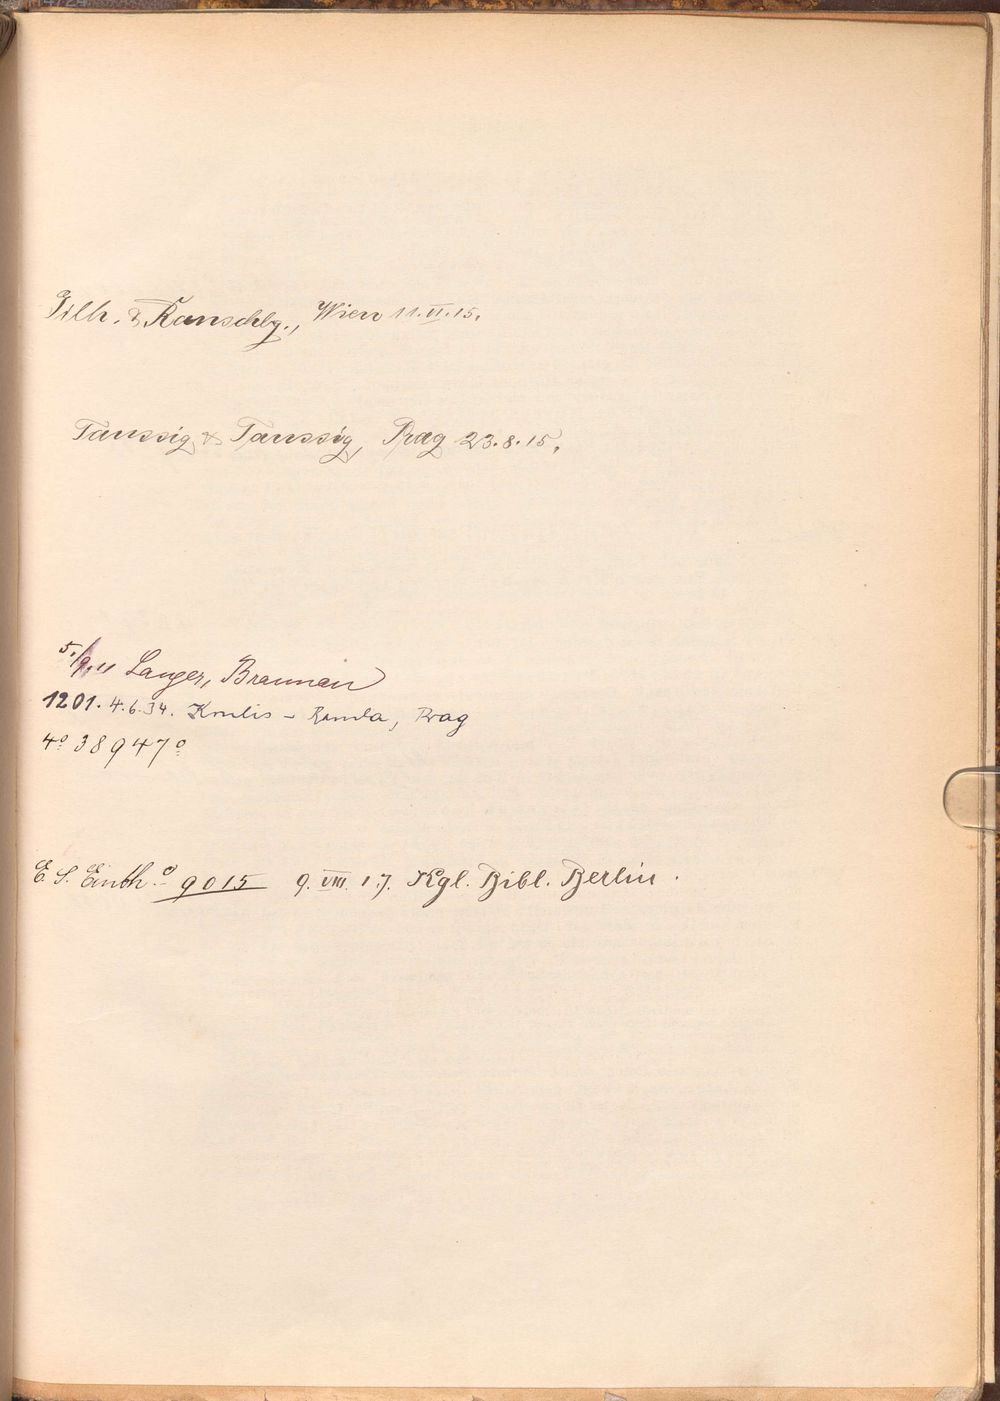 Gilh. & Ranschbg., Wien 11.VI.15.
Taussig & Taussig, Prag 23.8.15.
5./9.11 Langer, Braunau
1201. 4.6.34. Krulis – Randa, Prag
4º 38947º
E. S. Einbh.º 9015 9. VIII. 17. Kgl. Bibl. Berlin.